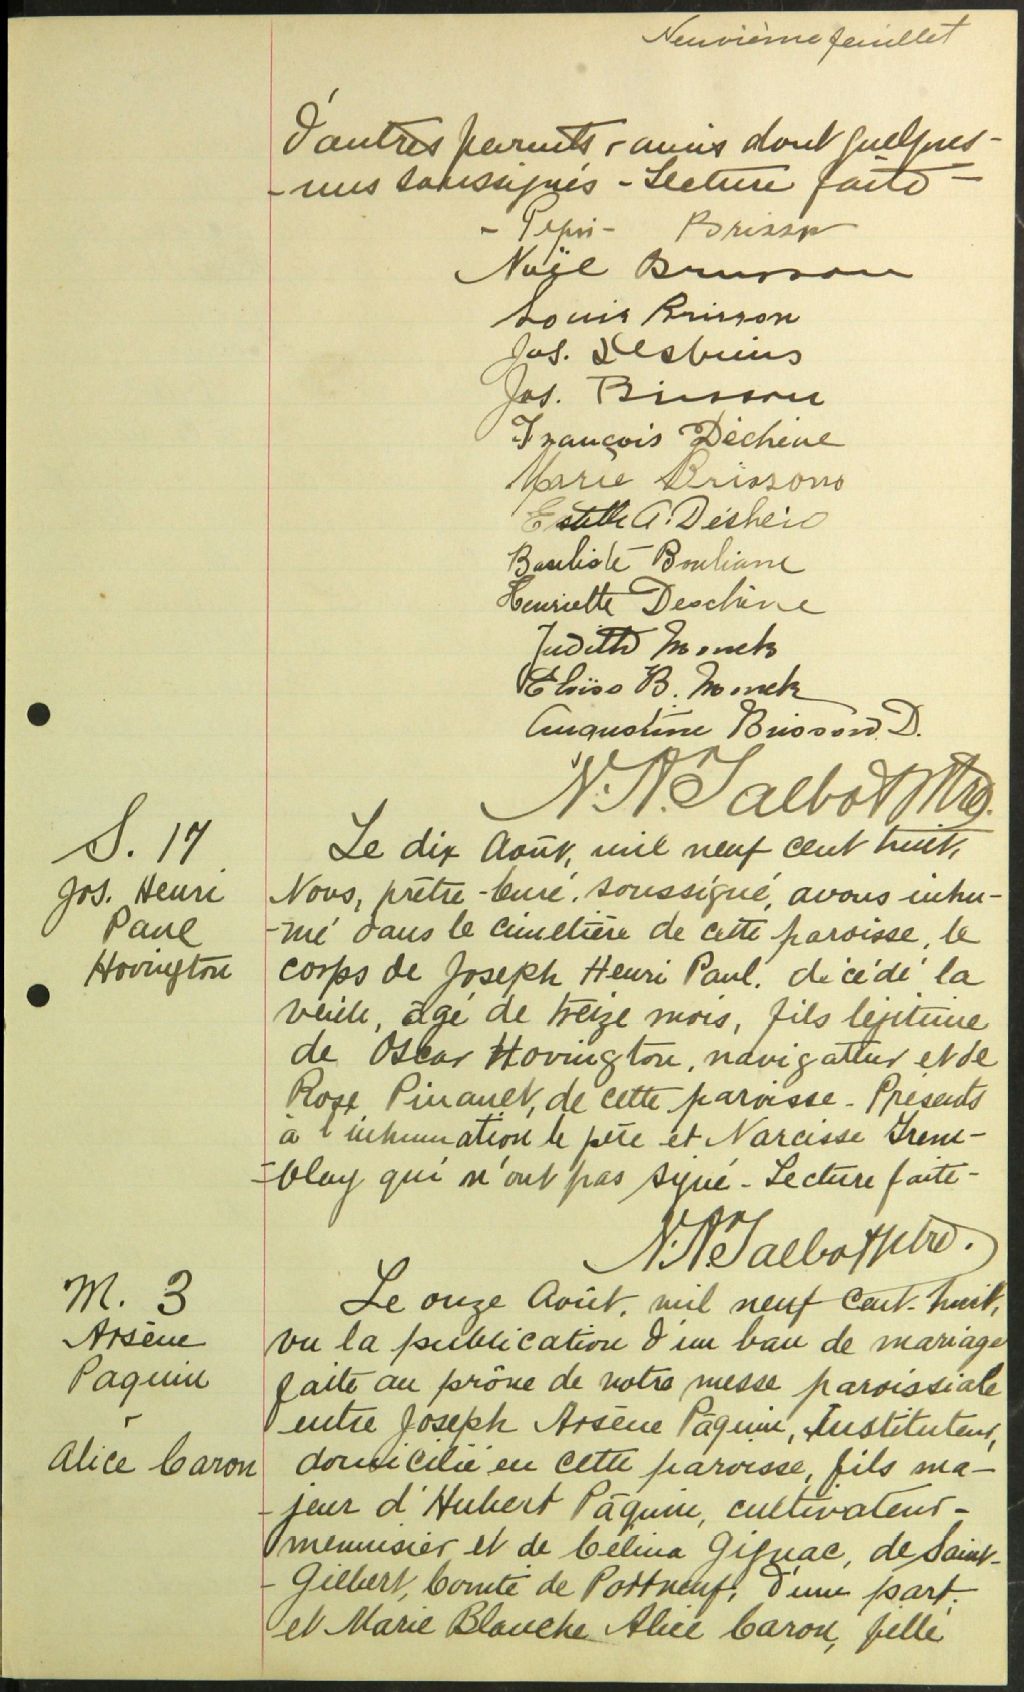 Neuvième feuillet
d'autres parents & amis dont quelques-
-uns soussignés - Lecture faite -
- Pépin - Brisson
Noël Brisson
Louis Brisson
Jos.
Jos. Brisson
François Dechêne
Marie Brisson
Estelle A.
Baptiste Bouliane
Henriette Deschêne
Judith Monck
B. Monck
Augustine Brisson D.
N. A. Talbot Ptre.
S. 17
Jos. Henri
Paul
Hovington
Le dix Août, mil neuf cent huit,
Nous, prêtre-curé, soussigné, avons inhu-
-mé dans le cimetière de cette paroisse, le
corps de Joseph Henri Paul, décédé la
veille, âgé de treize mois, fils légitime
de Oscar Hovington, navigateur et de
Rose Pinault, de cette paroisse - Présents
à l'inhumation le père et Narcisse Trem-
-blay qui n'ont pas signé - Lecture faite -
N. A. Talbot ptre.
M. 3
Arsène
Paquin
&
Alice Caron
Le onze Août, mil neuf cent-huit,
vu la publication d'un ban de mariage
faite au prône de notre messe paroissiale
entre Joseph Arsène Pâquin, Instituteur,
domicilié en cette paroisse, fils ma-
-jeur d'Hubert Pâquin, cultivateur-
menuisier et de Célina Gignac, de Saint-
-Gilbert, Comté de Portneuf, d'une part,
et Marie Blanche Alice Caron, fille